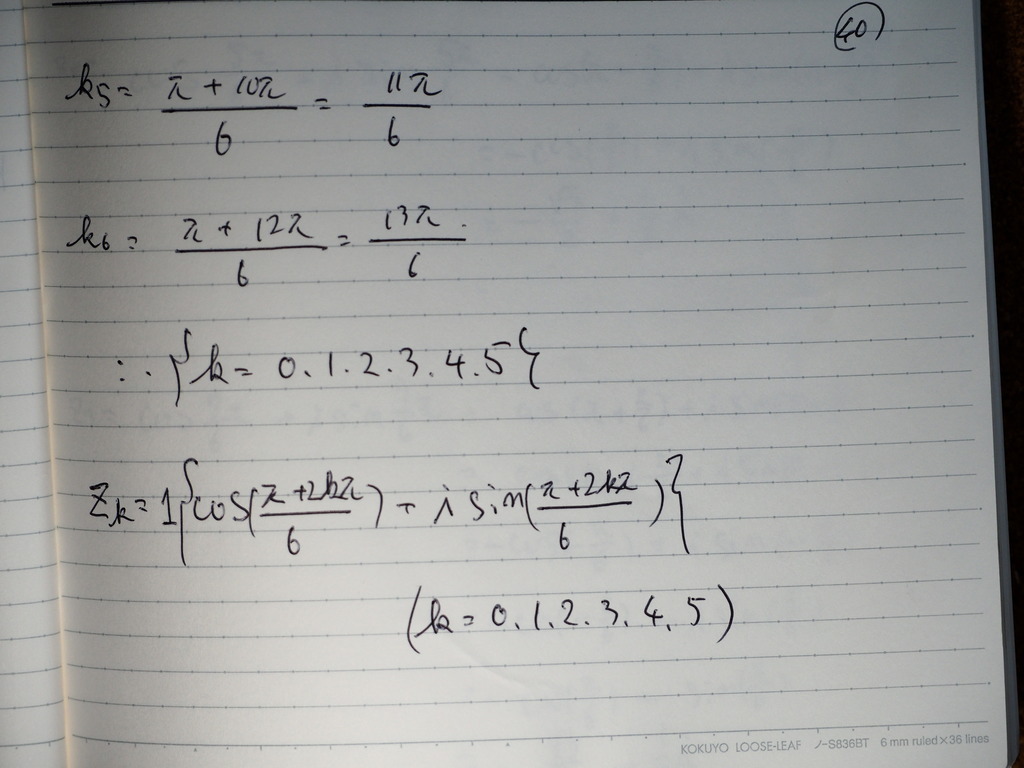 40
k5 = (π + 10π)/6 = 11π/6
k6 = (π + 12π)/6 = 13π/6
∴ { k = 0. 1. 2. 3. 4. 5 {
Zk = 1{cos((π + 2kπ)/6) + i sin((π + 2kπ)/6)}
(k = 0. 1. 2. 3. 4. 5)
KOKUYO LOOSE-LEAF ノ-S836BT 6 mm ruled×36 lines